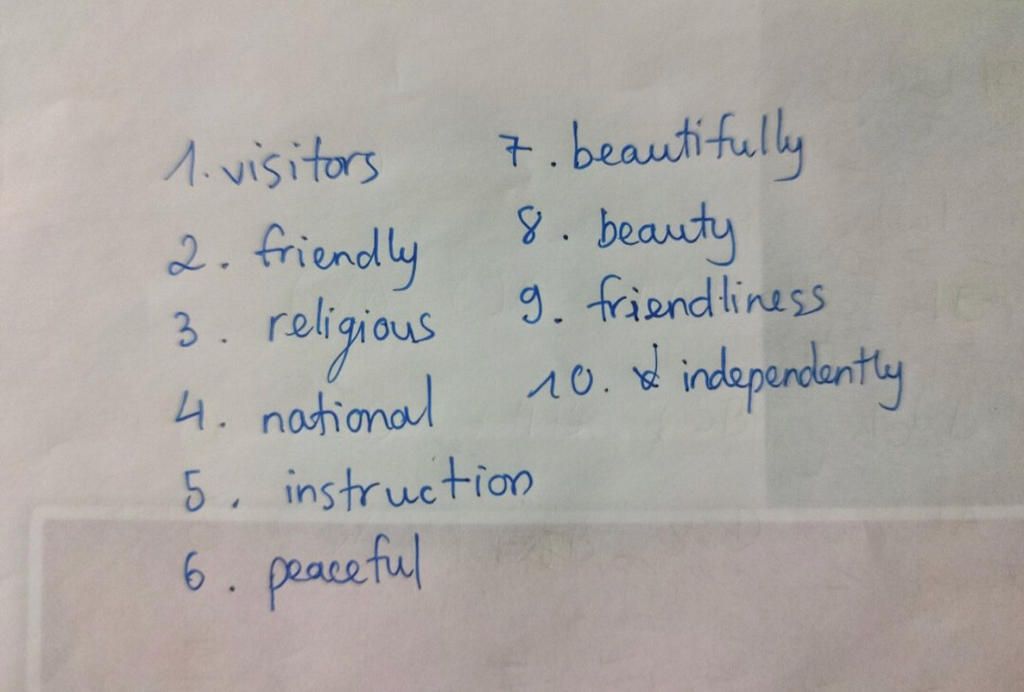 1. visitors
2. friendly
3. religious
4. national
5. instruction
6. peaceful
7. beautifully
8. beauty
9. friendliness
10. independently